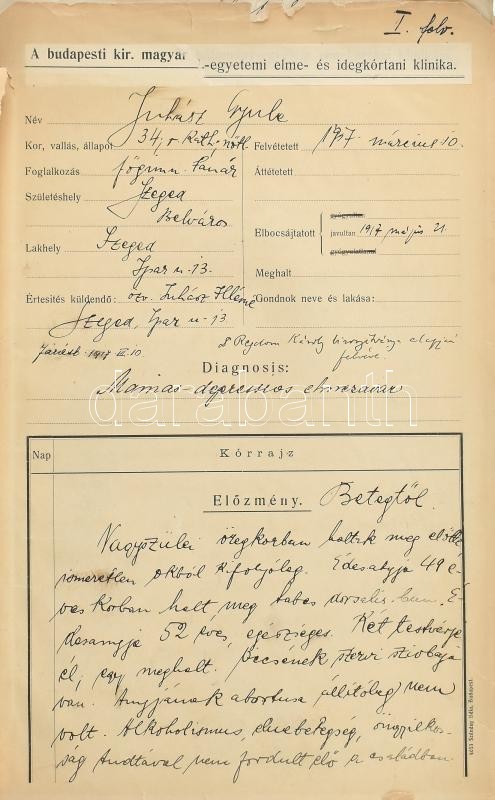 I. felv.
A budapesti kir. magyar -egyetemi elme- és idegkórtani klinika.
Név Juhász Gyula
Kor, vallás, állapot 34, r. kath, nőtl.
Foglalkozás főgimn. tanár
Születéshely Szeged
Belváros
Lakhely Szeged
Ipar u. 13.
Értesítés küldendő: özv. Juhász Illésné
Szeged, Ipar u. 13
1917 III. 10
Felvétetett 1917 március 10.
Áttétetett
gyógyultan
Elbocsájtatott javultan 1917 május 21
gyógyulatlanul
Meghalt
Gondnok neve és lakása:
Károly bizonyítványa alapján
felvéve.
Diagnosis:
Manias-depressios elmezavar
darabanth
Nap Kórrajz
Előzmény. Betegtől.
Nagyszülei öregkorban haltak meg előtte
ismeretlen okból kifolyólag. Édesatyja 49 é-
ves korban halt meg tabes dorsalisban. É-
desanyja 52 éves, egészséges. Két testvérje
él, egy meghalt. Öccsének szervi szivbaja
van. Anyjának abortusa állítólag nem
volt. Alkoholismus, elmebetegség, öngyilkos-
ság tudtával nem fordult elő a családban.